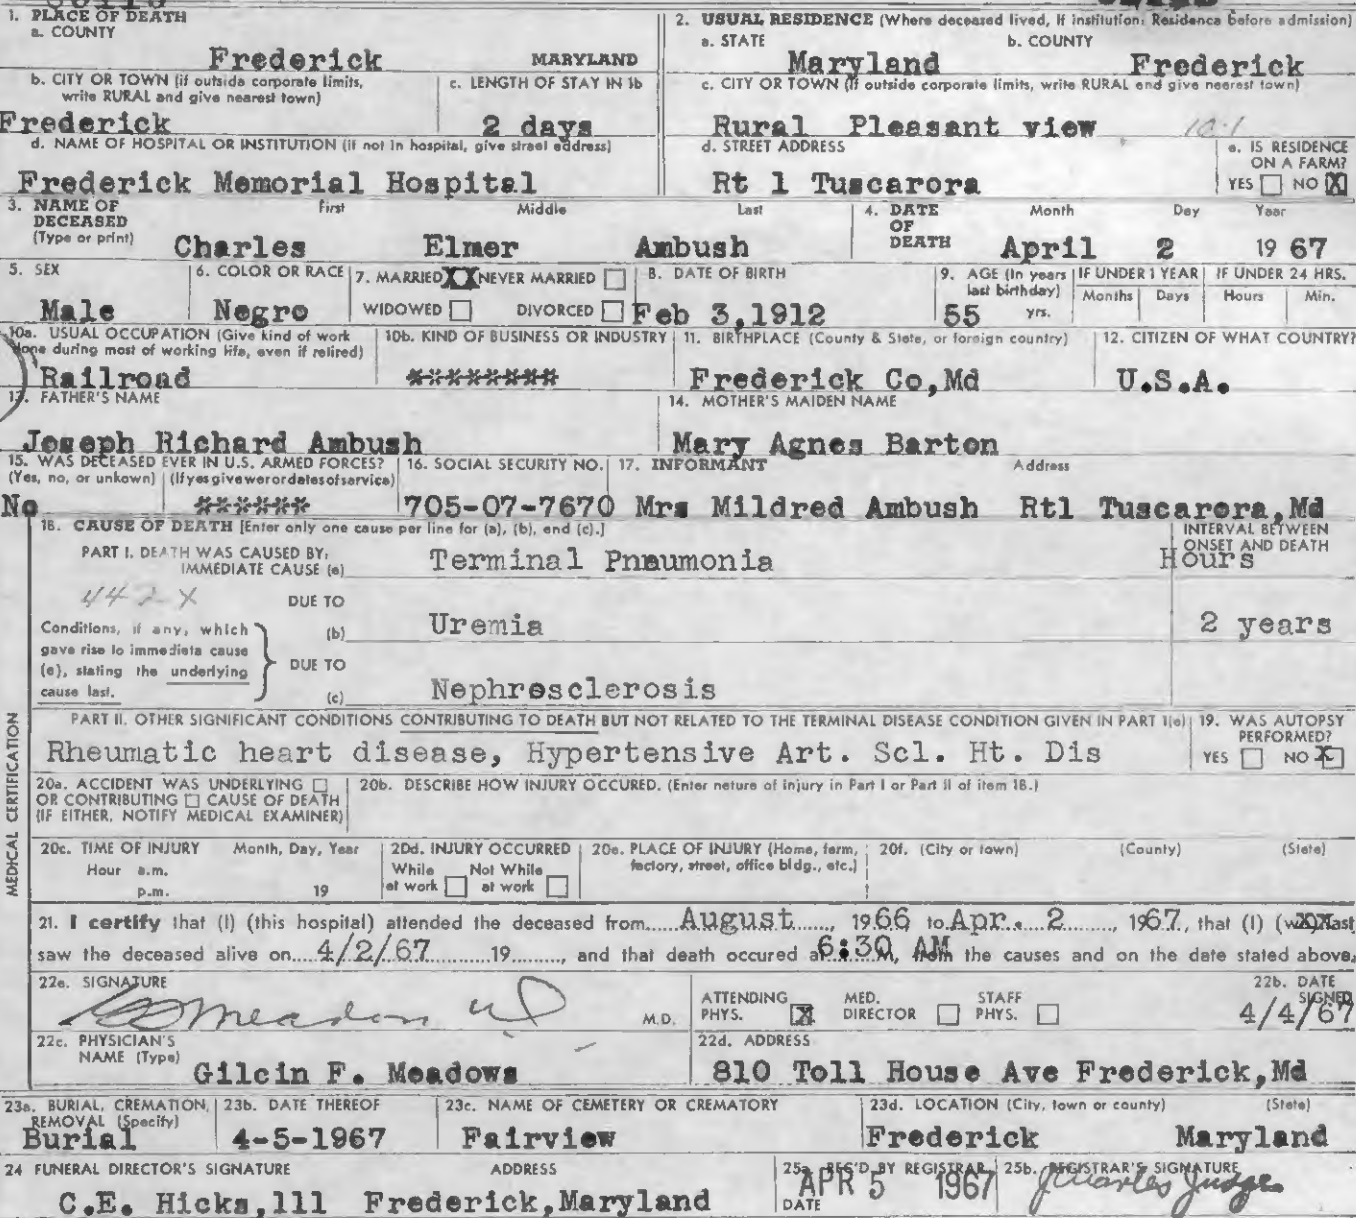 1. PLACE OF DEATH
a. COUNTY
Frederick MARYLAND
2. USUAL RESIDENCE (Where deceased lived, If institution: Residence before admission)
a. STATE b. COUNTY
Maryland Frederick
b. CITY OR TOWN (if outside corporate limits, write RURAL and give nearest town)
c. LENGTH OF STAY IN 1b
Frederick 2 days
c. CITY OR TOWN (If outside corporate limits, write RURAL and give nearest town)
Rural Pleasant view 10-1
d. NAME OF HOSPITAL OR INSTITUTION (if not in hospital, give street address)
Frederick Memorial Hospital
d. STREET ADDRESS
Rt 1 Tuscarora
e. IS RESIDENCE ON A FARM?
YES NO X
3. NAME OF DECEASED (Type or print)
First Middle Last
Charles Elmer Ambush
4. DATE OF DEATH
Month Day Year
April 2 19 67
5. SEX
Male
6. COLOR OR RACE
Negro
7. MARRIED XX NEVER MARRIED
WIDOWED DIVORCED
8. DATE OF BIRTH
Feb 3,1912
9. AGE (In years last birthday)
55 yrs.
IF UNDER 1 YEAR
Months Days
IF UNDER 24 HRS.
Hours Min.
10a. USUAL OCCUPATION (Give kind of work done during most of working life, even if retired)
Railroad
10b. KIND OF BUSINESS OR INDUSTRY
********
11. BIRTHPLACE (County & State, or foreign country)
Frederick Co,Md
12. CITIZEN OF WHAT COUNTRY?
U.S.A.
13. FATHER'S NAME
Joseph Richard Ambush
14. MOTHER'S MAIDEN NAME
Mary Agnes Barton
15. WAS DECEASED EVER IN U.S. ARMED FORCES?
(Yes, no, or unkown) (If yes give wer or dates of service)
No ******
16. SOCIAL SECURITY NO.
705-07-7670
17. INFORMANT Address
Mrs Mildred Ambush Rt1 Tuscarora,Md
18. CAUSE OF DEATH [Enter only one cause per line for (a), (b), and (c).]
INTERVAL BETWEEN ONSET AND DEATH
PART I. DEATH WAS CAUSED BY:
IMMEDIATE CAUSE (a) Terminal Pneumonia Hours
442X
DUE TO
(b) Uremia 2 years
Conditions, if any, which gave rise to immediate cause (a), stating the underlying cause last.
DUE TO
(c) Nephrosclerosis
MEDICAL CERTIFICATION
PART II. OTHER SIGNIFICANT CONDITIONS CONTRIBUTING TO DEATH BUT NOT RELATED TO THE TERMINAL DISEASE CONDITION GIVEN IN PART I(a)
Rheumatic heart disease, Hypertensive Art. Scl. Ht. Dis
19. WAS AUTOPSY PERFORMED?
YES NO X
20a. ACCIDENT WAS UNDERLYING
OR CONTRIBUTING CAUSE OF DEATH
(IF EITHER, NOTIFY MEDICAL EXAMINER)
20b. DESCRIBE HOW INJURY OCCURED. (Enter nature of injury in Part I or Part II of item 18.)
20c. TIME OF INJURY Month, Day, Year
Hour a.m.
p.m. 19
20d. INJURY OCCURRED
While at work Not While at work
20e. PLACE OF INJURY (Home, farm, factory, street, office bldg., etc.)
20f. (City or town) (County) (State)
21. I certify that (I) (this hospital) attended the deceased from August, 1966 to Apr. 2, 1967, that (I) last
saw the deceased alive on 4/2/67 19, and that death occured 6:30 AM, the causes and on the date stated above.
22a. SIGNATURE
Meadows M.D.
ATTENDING PHYS. X MED. DIRECTOR STAFF PHYS.
22b. DATE SIGNED
4/4/67
22c. PHYSICIAN'S NAME (Type)
Gilcin F. Meadows
22d. ADDRESS
810 Toll House Ave Frederick,Md
23a. BURIAL, CREMATION, REMOVAL (Specify)
Burial
23b. DATE THEREOF
4-5-1967
23c. NAME OF CEMETERY OR CREMATORY
Fairview
23d. LOCATION (City, town or county) (State)
Frederick Maryland
24 FUNERAL DIRECTOR'S SIGNATURE ADDRESS
C.E. Hicks,111 Frederick,Maryland
25a. REC'D BY REGISTRAR
DATE APR 5 1967
25b. REGISTRAR'S SIGNATURE
J Charles Judge